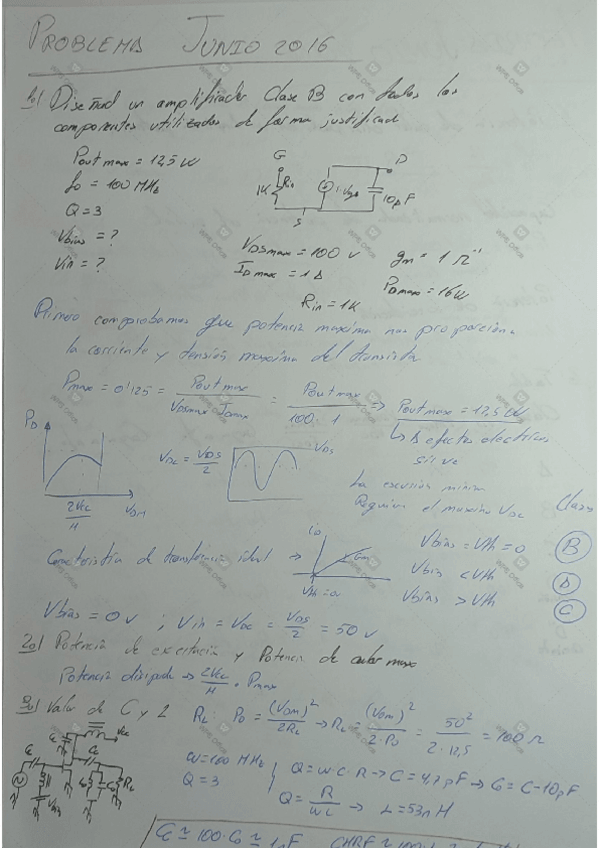 PROBLEMA JUNIO 2016
1o) Diseñad un amplificador Clase B con todos los
componentes utilizados de forma justificad
Pout max = 12,5 W
fo = 100 MHz
Q = 3
Vbias = ?
Vin = ?
G D
1K Rin 10pF
S
VDSmax = 100 v gm = 1 Ω⁻¹
IDmax = 1 A PDmax = 16W
Rin = 1K
Primero comprobamos que potencia maxima nos proporciona
la corriente y tensión maxima del transistor
Pmax = 0'125 = Pout max / VDSmax IDmax = Pout max / 100 · 1 => Pout max = 12,5 W
↳ A efectos electricos
sirve
PD
2Vcc / π VDM
VDC = VDS / 2
VDS
La excursión minima
Requiere el maximo VDC
Clases
Caracteristica de transferencia ideal → iD Gm
Vth = 0v
Vbias = Vth = 0 B
Vbias < Vth
Vbias > Vth C
Vbias = 0v ; Vin = VDC = VDS / 2 = 50 v
2o) Potencia de excitacia y Potencia de calor max
Potencia disipada → 2Vcc / π · Pmax
3o) Valor de C y L
RL: PD = (VDM)² / 2RL → RL = (VDM)² / 2·PD = 50² / 2·12,5 = 100 Ω
ω = 100 MHz
Q = 3
Q = ω·C·R → C = 4,7pF → Co = C - 10pF
Q = R / ωL → L = 53nH
Vcc
RL
Vbias
Cc ≃ 100·Co ≃ 1nF